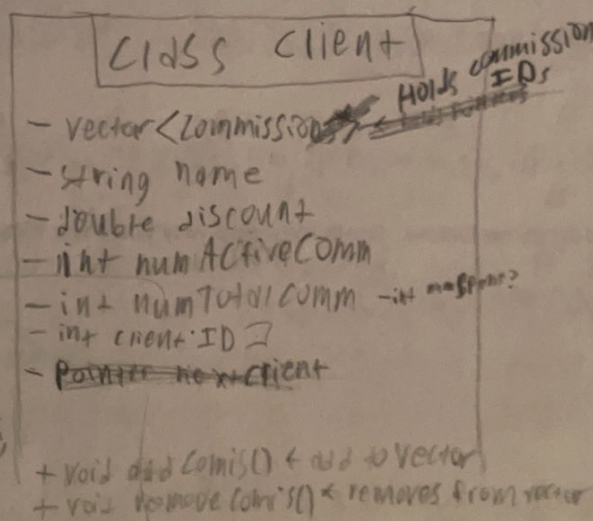 class client
Holds commission
IDs
- vector<commission
- string name
- double discount
- int numActiveComm
- int numTotalComm - int
- int client ID
- Pointer next client
+ void add Comis() ← add to vector
+ void remove Comis() ← removes from vector